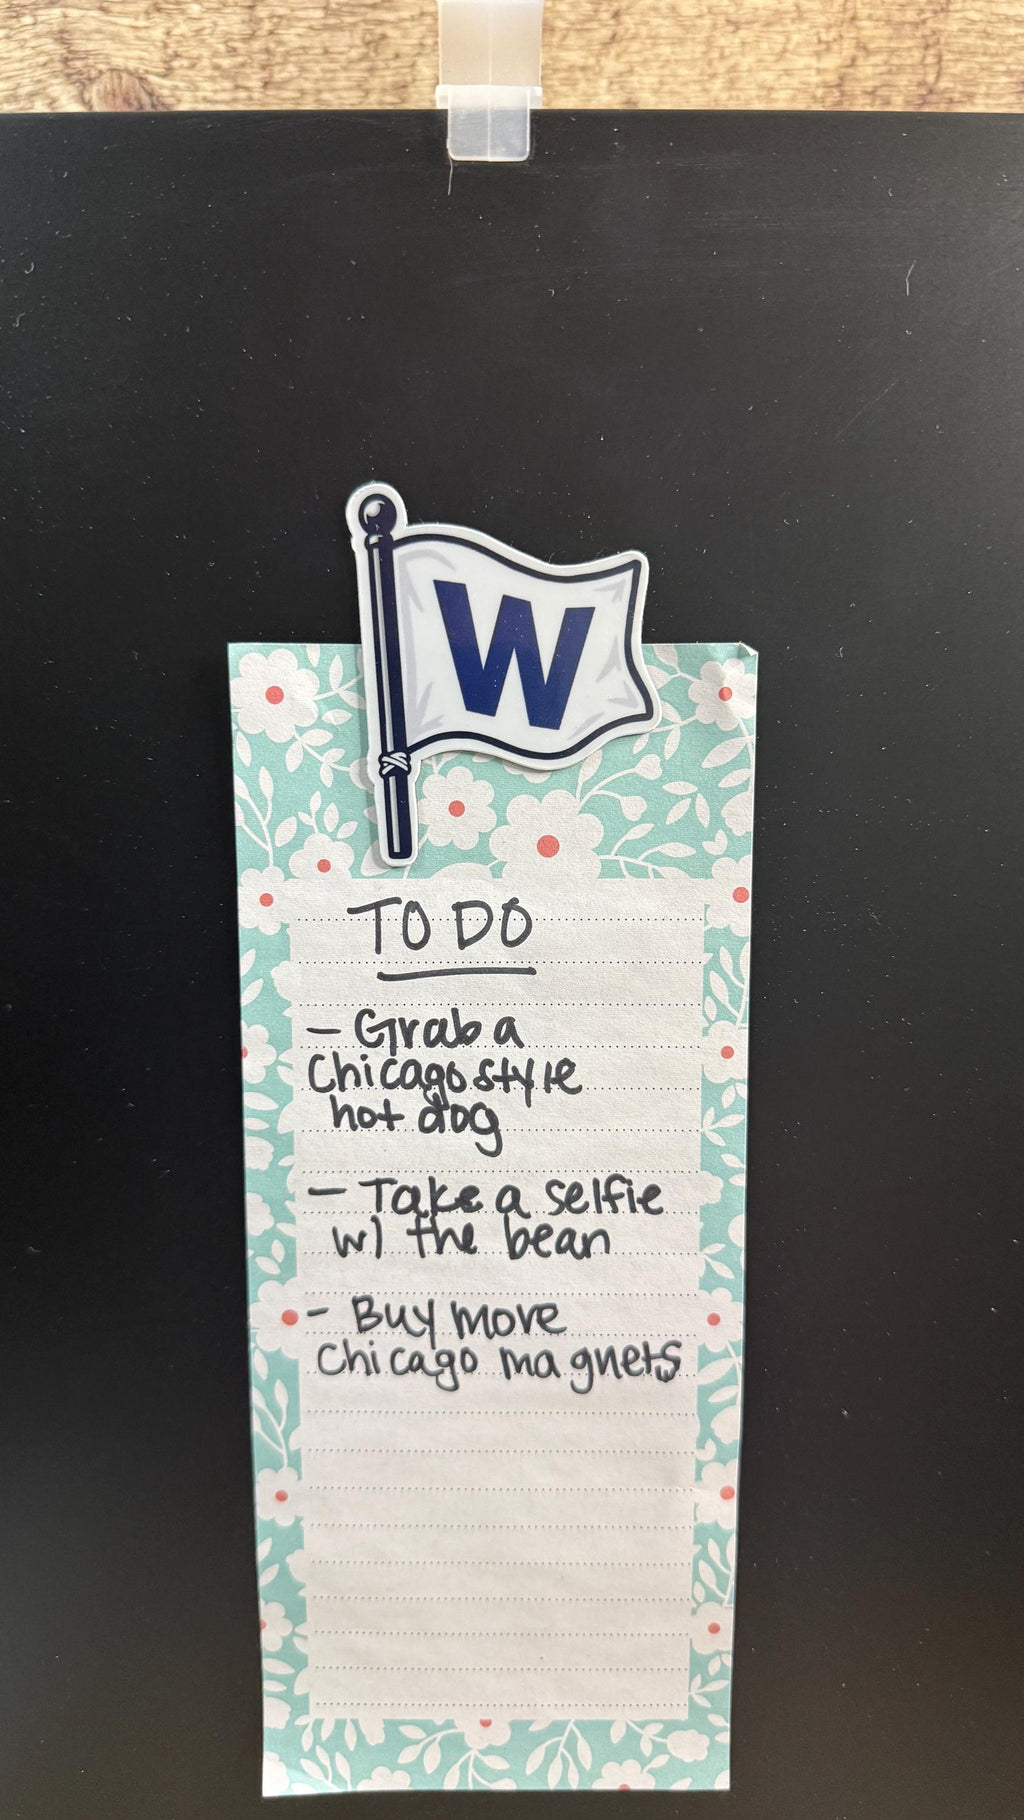 W
TO DO
- Grab a
Chicago style
hot dog
- Take a selfie
w/ the bean
- Buy more
Chicago magnets